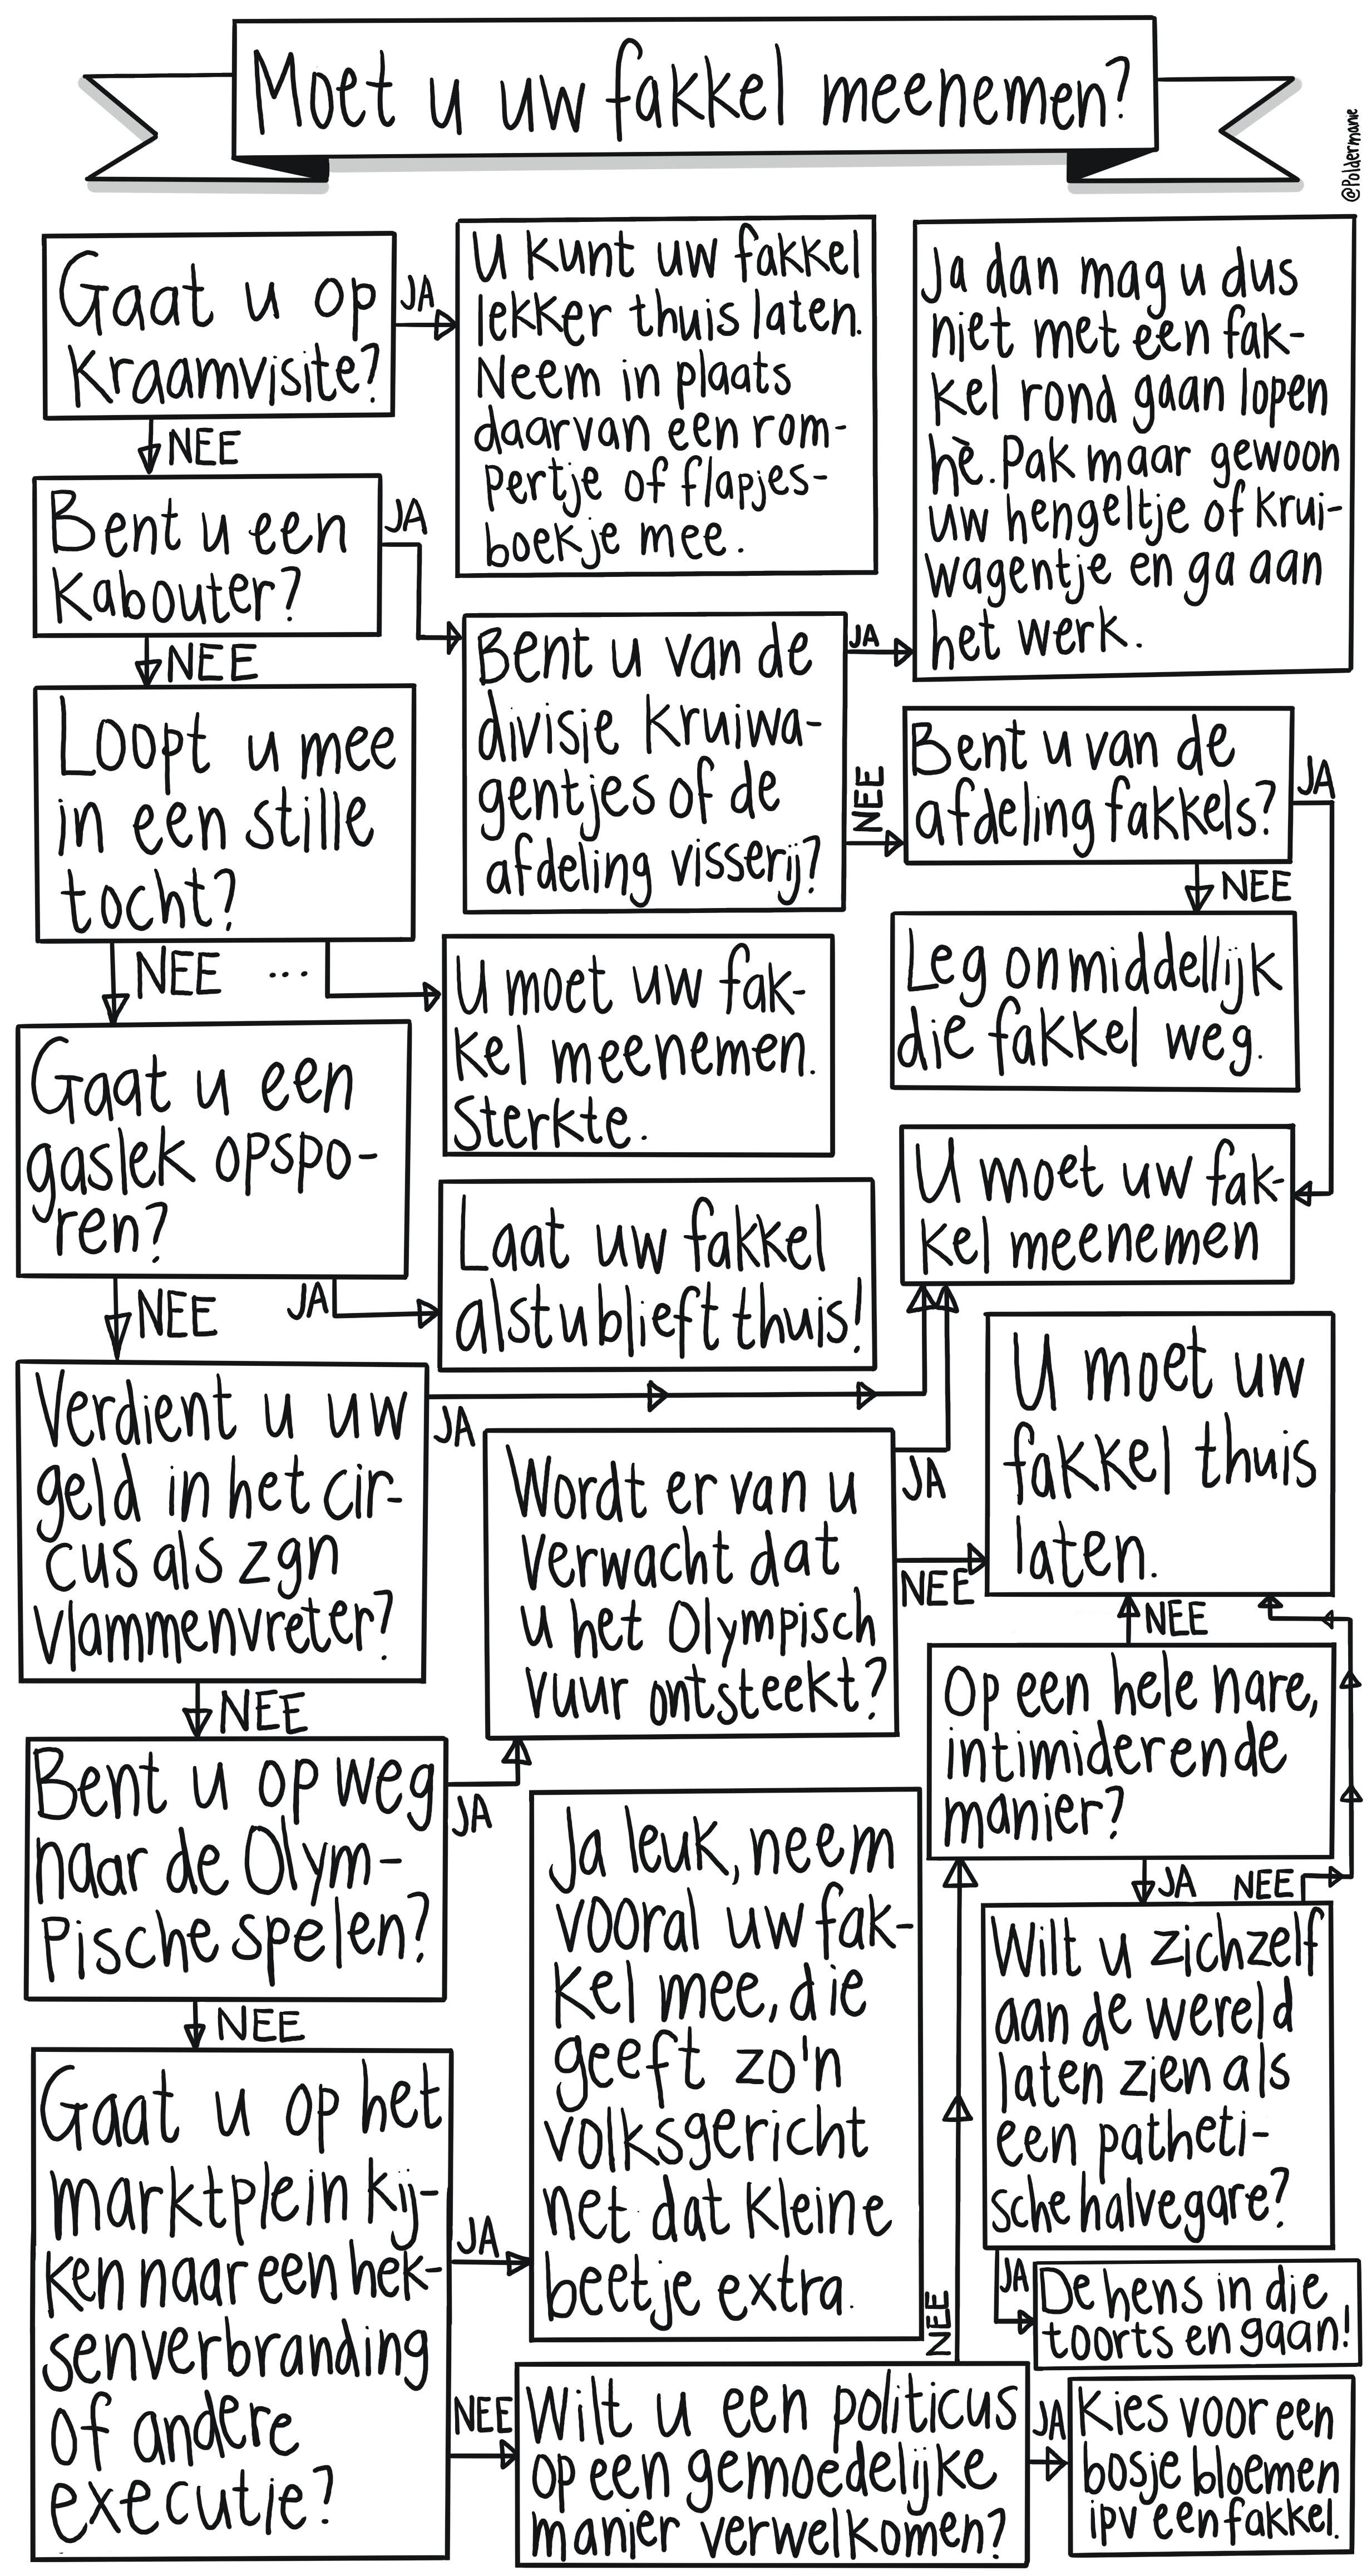 Moet u uw fakkel meenemen?
@Poldermanie
Gaat u op
Kraamvisite?
JA
NEE
U kunt uw fakkel
lekker thuis laten.
Neem in plaats
daarvan een rom-
pertje of flapjes-
boekje mee.
Ja dan mag u dus
niet met een fak-
kel rond gaan lopen
hè. Pak maar gewoon
uw hengeltje of krui-
wagentje en ga aan
het werk.
Bent u een
Kabouter?
JA
NEE
Bent u van de
divisie kruiwa-
gentjes of de
afdeling visserij?
JA
NEE
Bent u van de
afdeling fakkels?
JA
NEE
Leg onmiddellijk
die fakkel weg.
Loopt u mee
in een stille
tocht?
NEE ...
U moet uw fak-
kel meenemen.
Sterkte.
Gaat u een
gaslek opspo-
ren?
NEE
JA
Laat uw fakkel
alstublieft thuis!
U moet uw fak-
kel meenemen
Verdient u uw
geld in het cir-
cus als zgn
vlammenvreter?
JA
NEE
Wordt er van u
verwacht dat
u het Olympisch
vuur ontsteekt?
JA
NEE
U moet uw
fakkel thuis
laten.
Bent u op weg
naar de Olym-
pische spelen?
JA
NEE
Ja leuk, neem
vooral uw fak-
kel mee, die
geeft zo'n
volksgericht
net dat kleine
beetje extra.
NEE
Op een hele nare,
intimiderende
manier?
JA
NEE
Wilt u zichzelf
aan de wereld
laten zien als
een patheti-
sche halvegare?
JA
De hens in die
toorts en gaan!
Gaat u op het
marktplein kij-
ken naar een hek-
senverbranding
of andere
executie?
JA
NEE
Wilt u een politicus
op een gemoedelijke
manier verwelkomen?
NEE
JA
Kies voor een
bosje bloemen
ipv een fakkel.